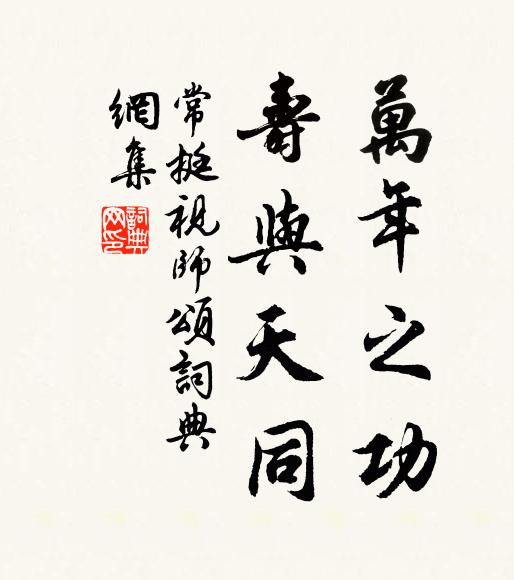 萬年之功
壽與天同
常挺視師頌詞典
網集
詞典網印